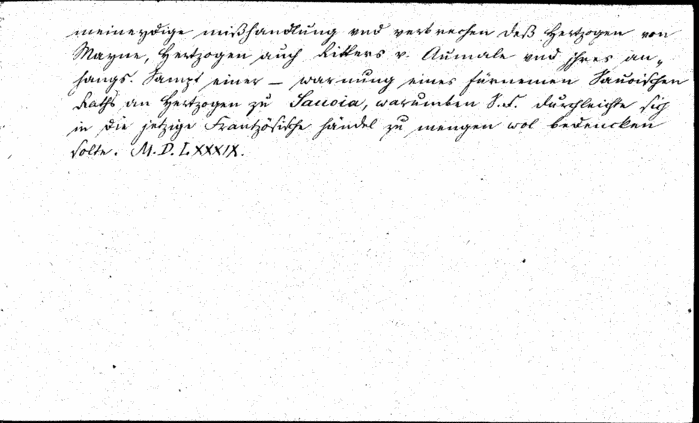 meineydige mißhandlung vnd verbrechen deß Hertzogen von
Mayne, Hertzogen auch Ritters v. Aumale vnd jhres an„
hangs. Sampt einer — warnung eines fürnemen Sauoischen
Raths an Hertzogen zu Sauoia, warumben S. F. durchleichte sich
in die jetzige Frantzösische händel zu mengen wol bedencken
solte. M.D.LXXXIX.